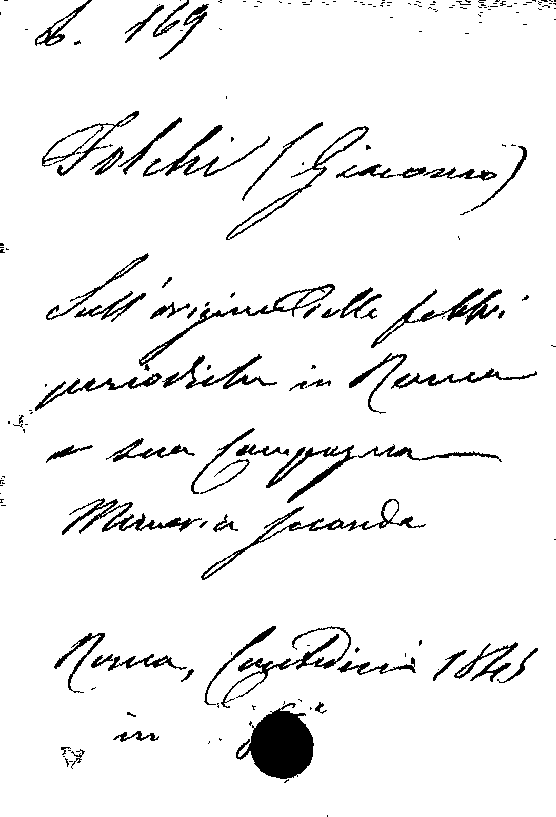 B. 169
Folchi (Giacomo)
Sull'origine delle febbri
periodiche in Roma
e sua Campagna
Memoria seconda
Roma, 1845
in